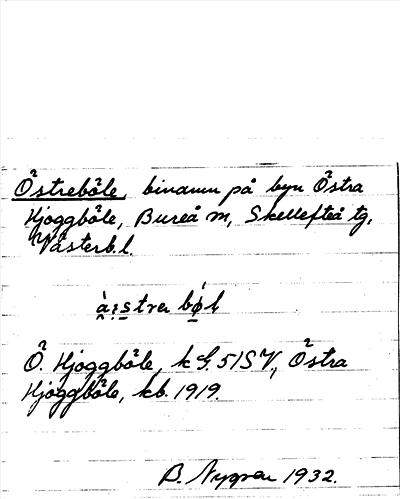 Östreböle, binamn på byn Östra
Hjoggböle, Bureå m, Skellefteå tg,
Västerb.l.
Ö. Hjoggböle, k G. 51SV, Östra
Hjoggböle, kb. 1919.
B. Nygren 1932.